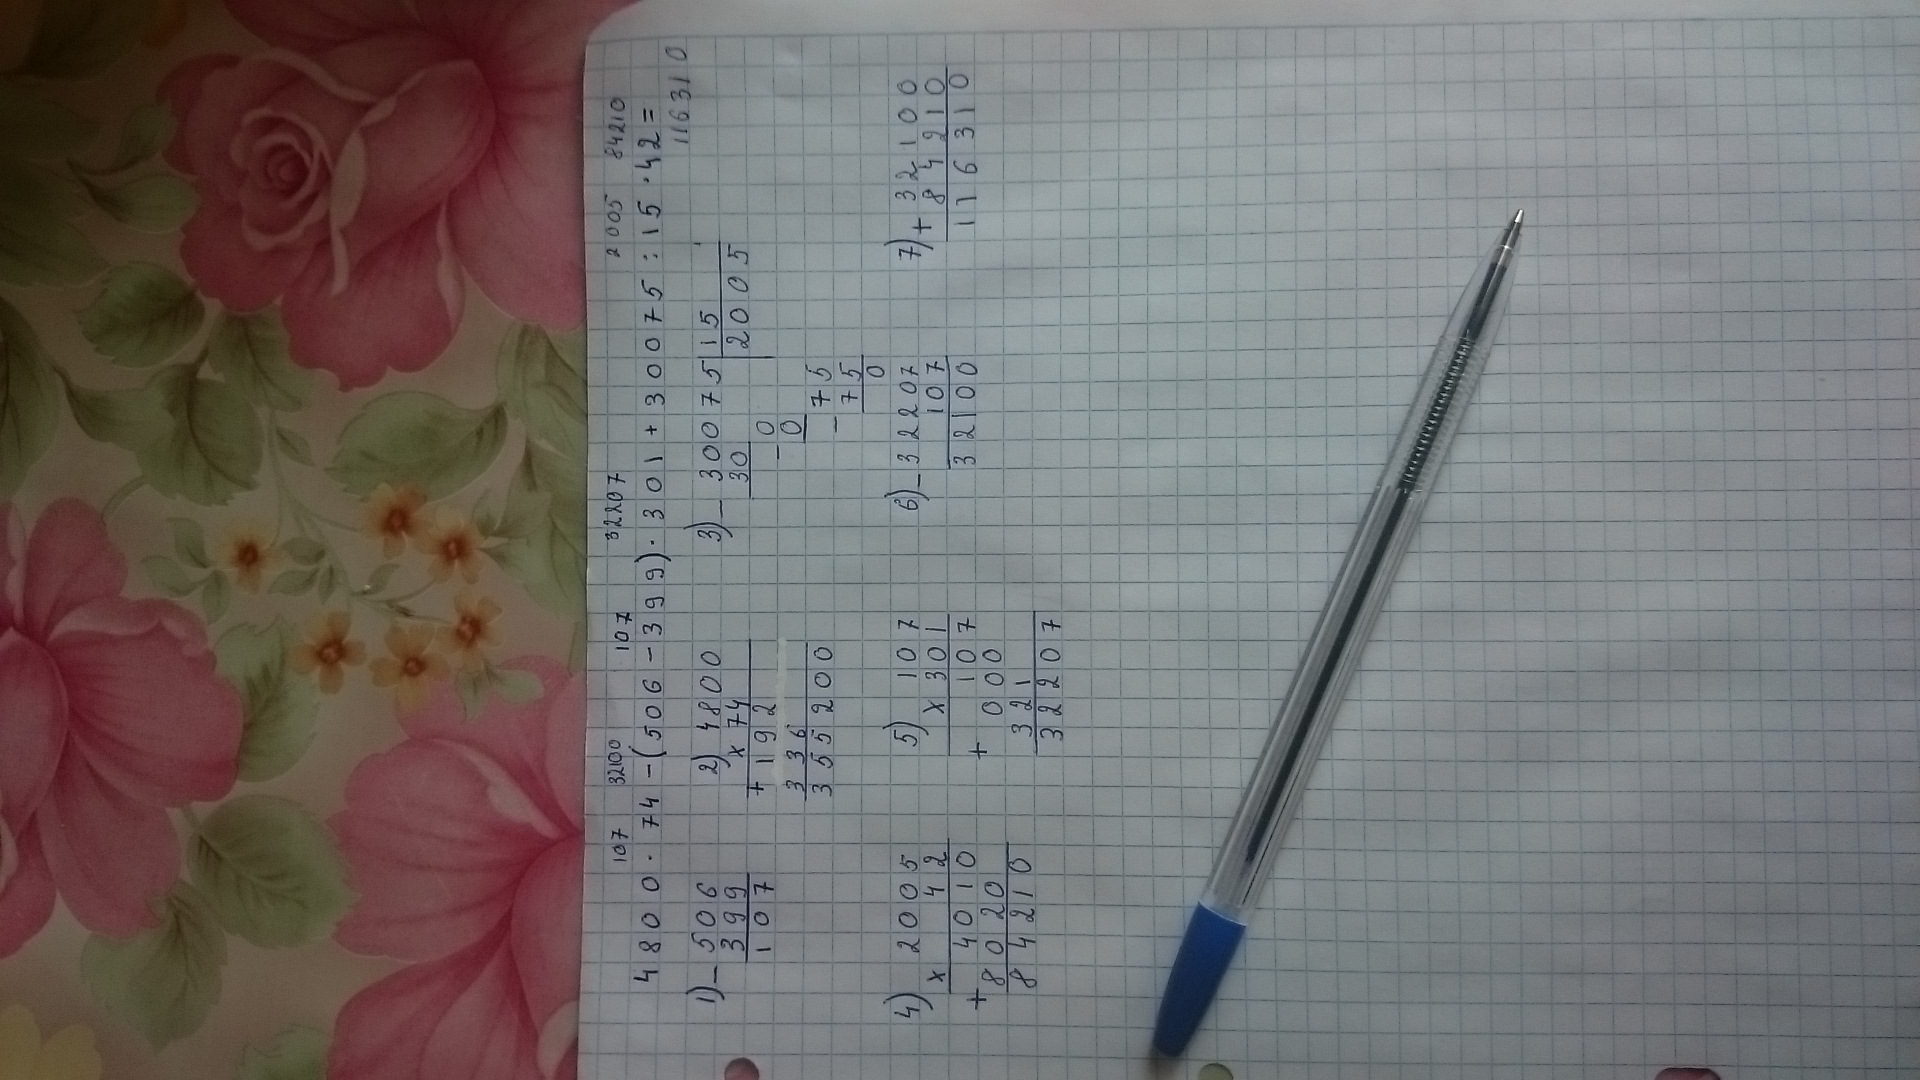 107 32100 107 32207 2005 84210
4800 · 74 - (506 - 399) · 301 + 30075 : 15 · 42 =
116310
1) - 506
399
107
2) 4800
x 74
+ 192
336
355200
3) - 30075 | 15
30 2005
- 0
0
- 75
75
0
4) x 2005
42
+ 4010
8020
84210
5) 107
x 301
+ 107
000
321
32207
6) - 32207
107
32100
7) + 32100
84210
116310